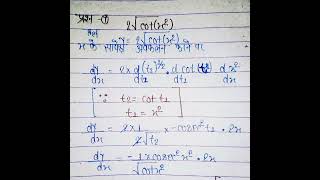 प्रश्न - ① 2√cot(x²)
हल y = 2√cot(x²)
x के सापेक्ष अवकलन करने पर
dy/dx = 2x d(t₂)^1/2 / dt₂ . d cot(t₁) / dt₁ . d x² / dx
[∵ t₂ = cot t₁
t₁ = x²]
dy/dx = 2 x 1 / 2√t₂ x -cosec² t₁ . 2x
dy/dx = -1 x cosec² x² . 2x / √cotx²